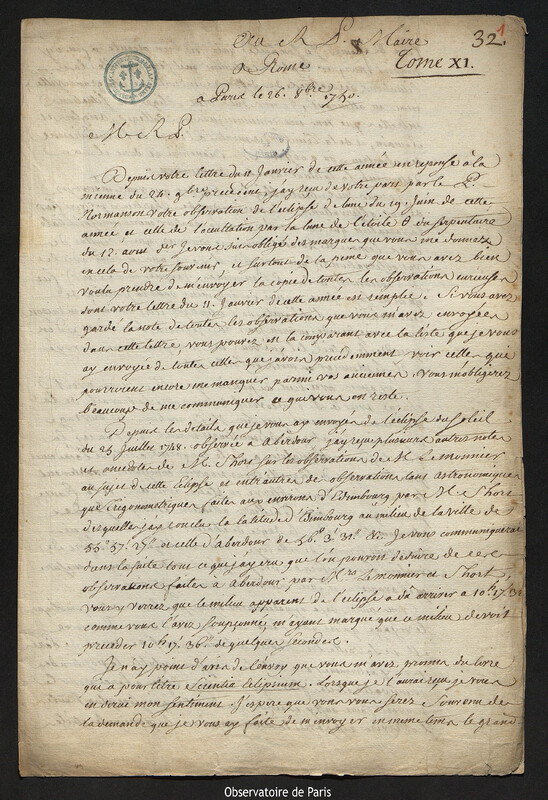 Au R. P. Maire
à Rome
32.
Tome XI.
a Paris le 26. 8bre 1750.
M. R. P.
Depuis votre lettre du 11 Janvier de cette année en reponse à la
mienne du 24. 9bre precedent, jay reçu de votre part par le P.
Normanon votre observation de l'eclipse de lune du 19. Juin de cette
année et celle de l'ocultation par la lune de l'étoile θ du serpentaire
du 12. aout der. Je vous suis obligé des marques que vous me donnez
en cela de votre souvenir, et surtout de la peine que vous avez bien
voulu prendre de m'envoyer la copie de toutes les observations curieuses
dont votre lettre du 11. Janvier de cette année est remplie. Si vous avez
gardé la note de toutes les observations que vous m'avez envoyées
dans cette lettre, vous pouvez en la comparant avec la liste que je vous
ay envoyée de toutes celles que j'avois precedemment voir celles qui
pourroient encore me manquer parmi vos anciennes. Vous m'obligerez
beaucoup de me communiquer ce que vous en reste.
Depuis les details que je vous ay envoyés de l'eclipse du Soleil
du 25 Juillet 1748. observée à Aberdour jay reçu plusieurs autres notes
et anecdotes de M. Short sur les observations de M. Le monnier
au sujet de cette Eclipse et entr'autres des observations tant astronomiques
que Trigonometriques faites aux environs d'Edimbourg par M. Short
desquelles jay conclu la latitude d'Edimbourg au milieu de la ville de
55° 57' et celle d'Aberdour de 56° 3' &c. Je vous communiquerai
dans la suite tout ce que jay cru que l'on pouvoit deduire de ces
observations faites à Aberdour par Mrs Le monnier et Short,
vous y verrez que le milieu apparent de l'eclipse a dû arriver a 10h 17'
comme vous l'avez soupçonné, m'ayant marqué que ce milieu devoit
preceder 10h 17' 36" de quelques secondes.
Je n'ay point d'avis de l'envoy que vous m'avez promis du livre
qui a pour titre Scientia Eclipsium. Lorsque je l'aurai reçu je vous
en dirai mon sentiment. J'espere que vous vous serez souvenu de
la demande que je vous ay faite de m'envoyer en meme tems le grand
Observatoire de Paris